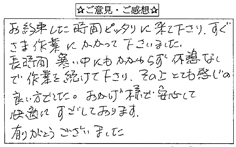 ☆ご意見・ご感想☆
お約束した時間ピッタリに来て下さり、すぐ
さま作業にかかって下さいました。
長時間 寒い中にもかかわらず 休憩なし
で作業を続けて下さり、その上とても感じの
良い方でした。おかげ様で安心して
快適にすごしております。
有りがとうございました